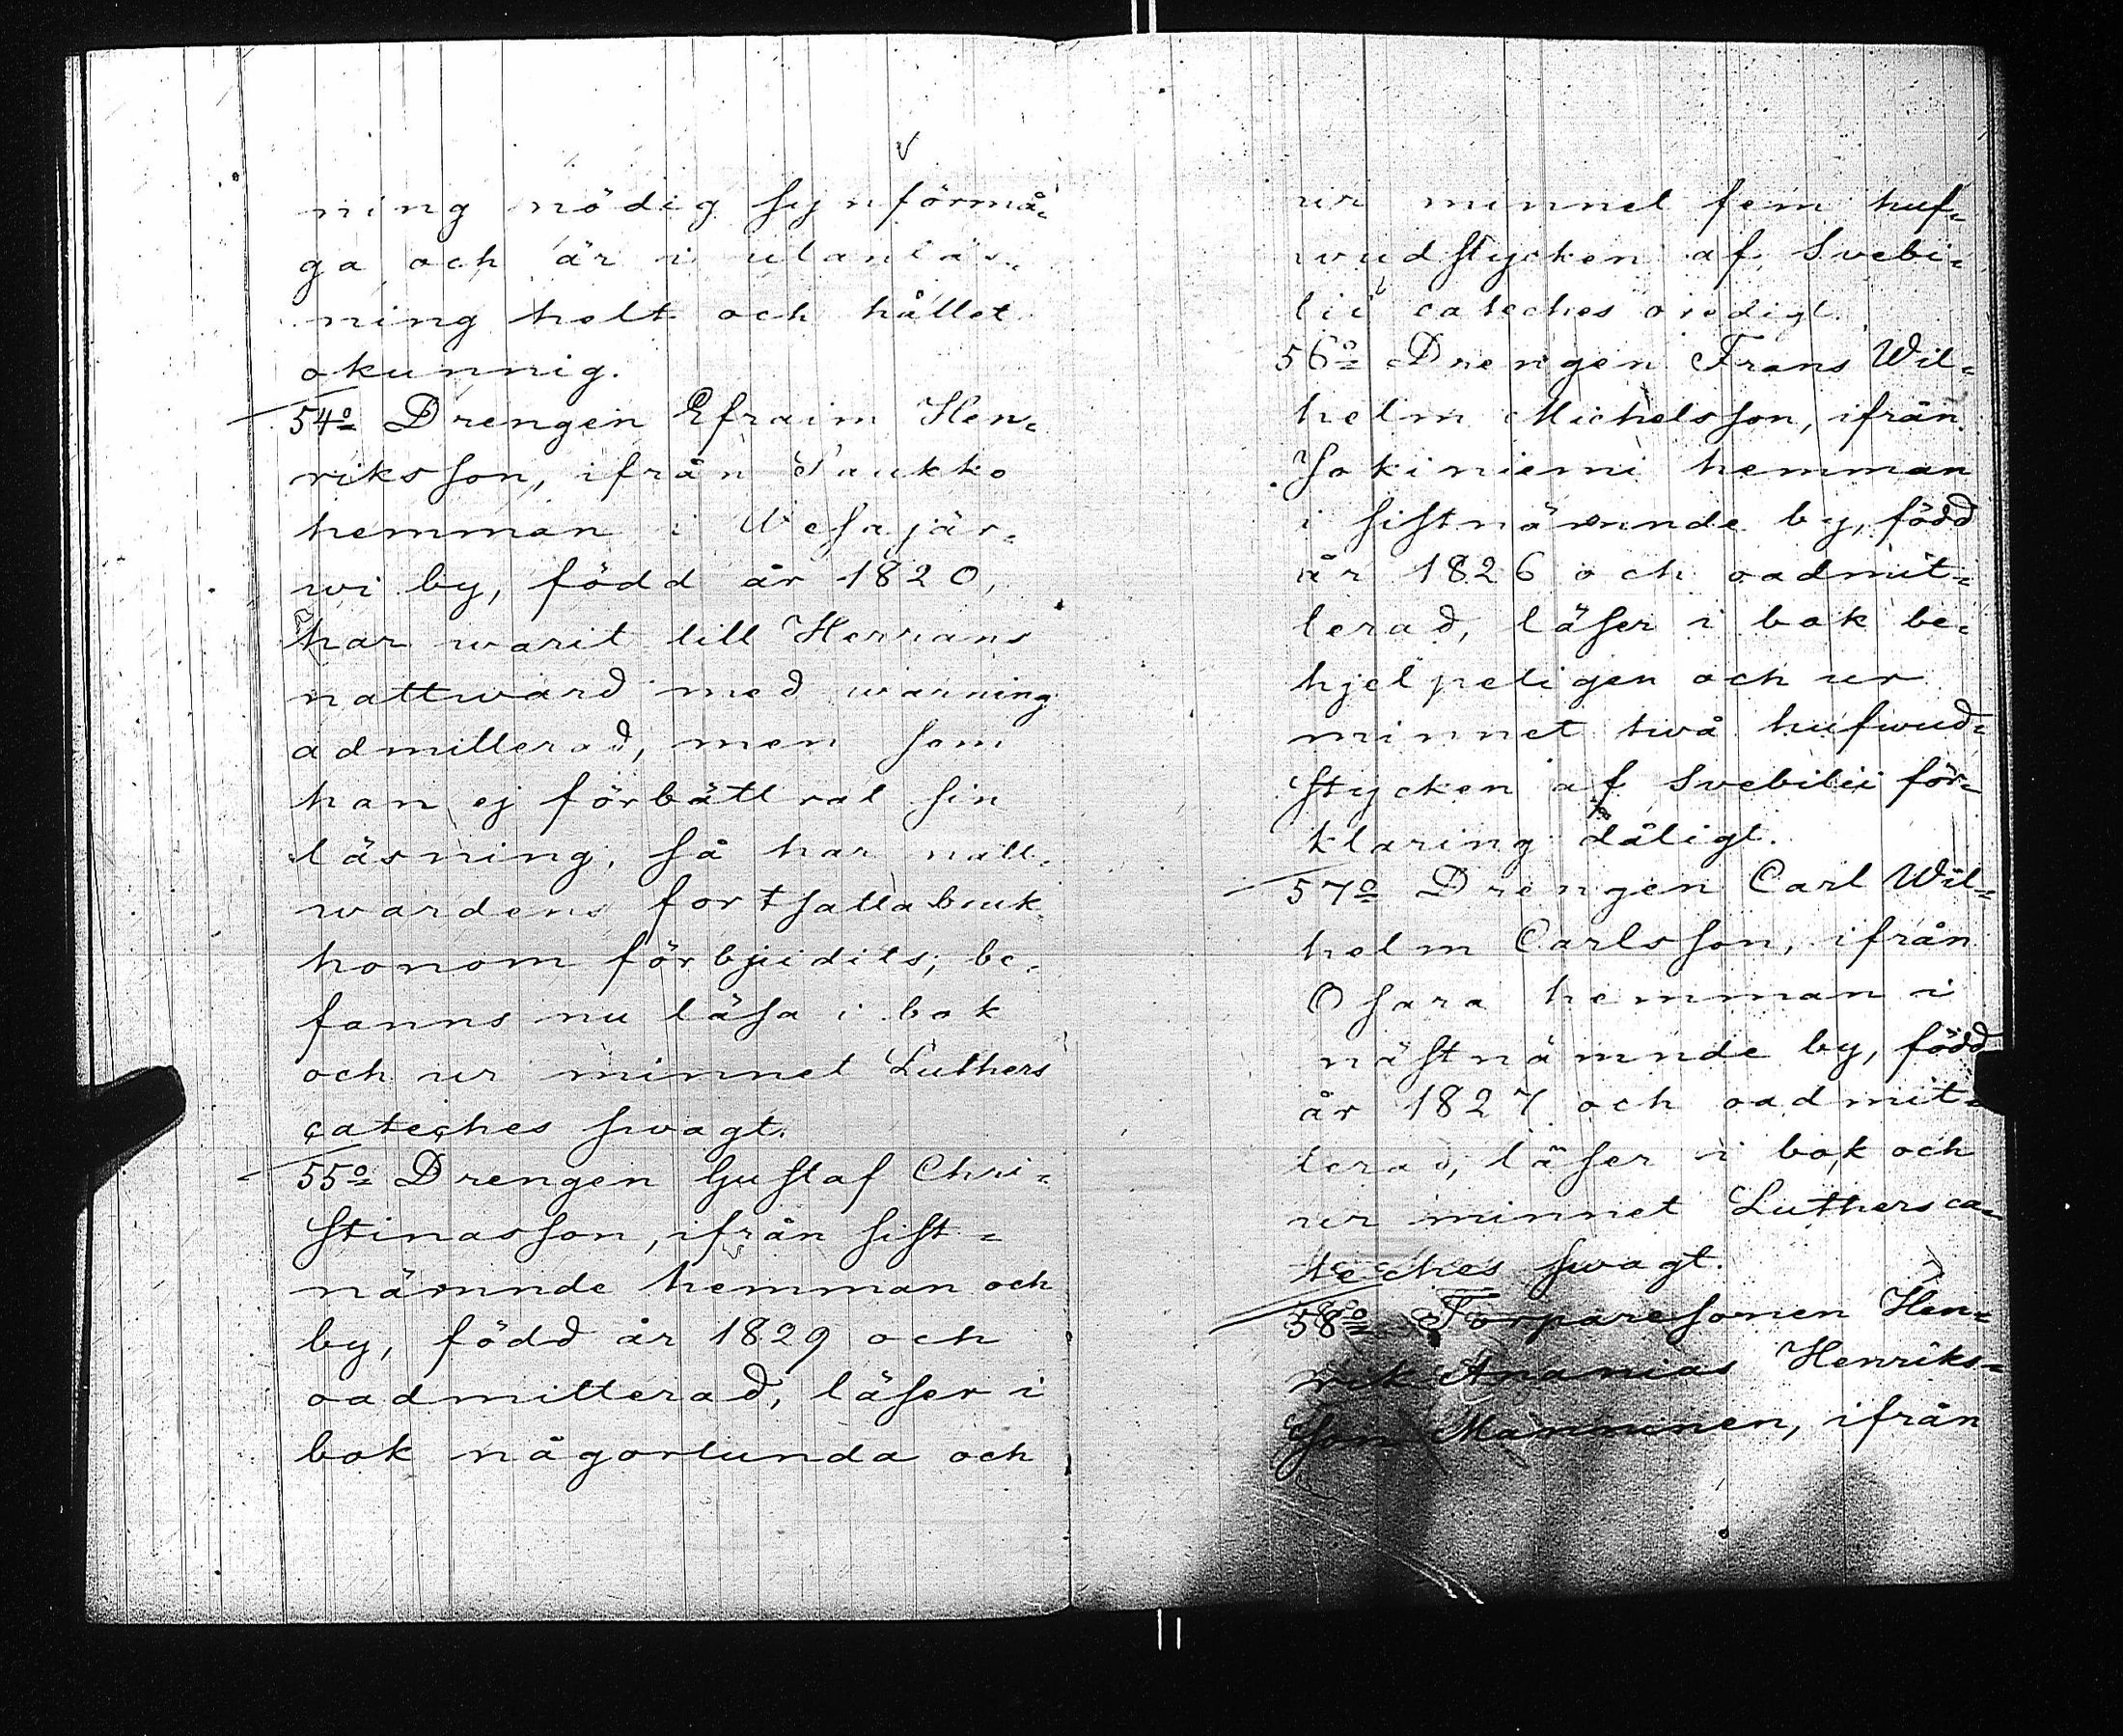 ning nödig synförmå=
ga och är i utanläs=
ning helt och hållet
okunnig.
54o Drengen Efraim Hen=
riksson, ifrån Paukko
hemman i Wesajär=
wi by, född år 1820,
har warit till Herrans
nattward med warning
admitterad, men som
han ej förbättrat sin
läsning, så har natt=
wardens fortsatta bruk
honom förbjudits; be=
fanns nu läsa i bok
och ur minnet Luthers
cateches swagt.
55o Drengen Gustaf Chri=
stinasson, ifrån sist=
nämnde hemman och
by, född år 1829 och
oadmitterad, läser i
bok någorlunda och
ur minnet fem huf=
wudstycken af Svebi=
lii cateches oredigt.
56o Drengen Frans Wil=
helm Michelsson, ifrån
Jokiniemi hemman
i sistnämnde by, född
år 1826 och oadmit=
terad, läser i bok be=
hjelpeligen och ur
minnet två hufwud=
stycken af Svebilii för=
klaring dåligt.
57o Drengen Carl Wil=
helm Carlsson, ifrån
Osara hemman i
nästnämnde by, född
år 1827 och oadmit=
terad, läser i bok och
ur minnet Luthers ca=
teches swagt.
58o Torparesonen Hen=
rik Ananias Henriks=
son Manninen, ifrån